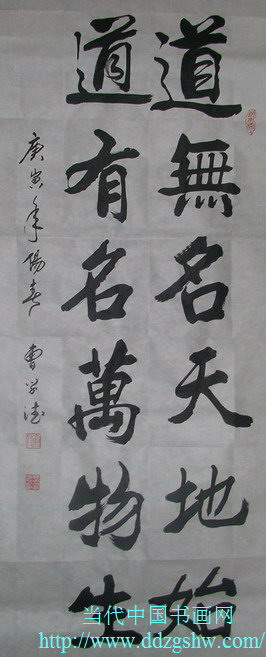 道無名天地始
道有名萬物生
庚寅年陽春 曹学德
当代中国书画网
http://www.ddzgshw.com/